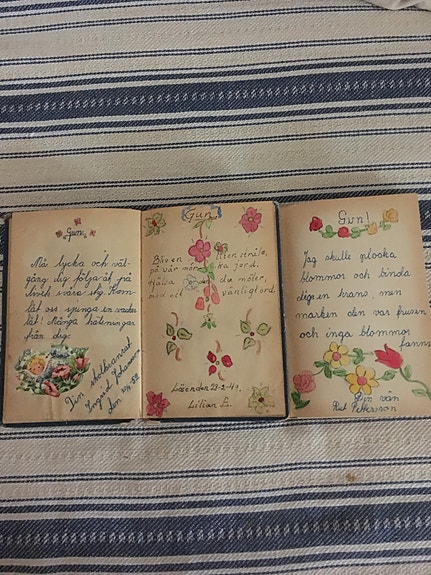 Gun.
Må lycka och väl-
gång dig följa åt på
livets vara stig. Kom
låt oss sjunga en vacker
låt! Många hälsningar
från dig.
Din skolkamrat
Ingrid Johansson
den
Gun
Bliv en liten stråle,
på vår mörka jord,
hjälpa den du möter,
med ett vänligt ord.
den 23-2-49.
Lilian E.
Gun!
Jag skulle plocka
blommor och binda
dig en krans, men
marken den var frusen
och inga blommor
fanns
Din vän
Rut Pettersson